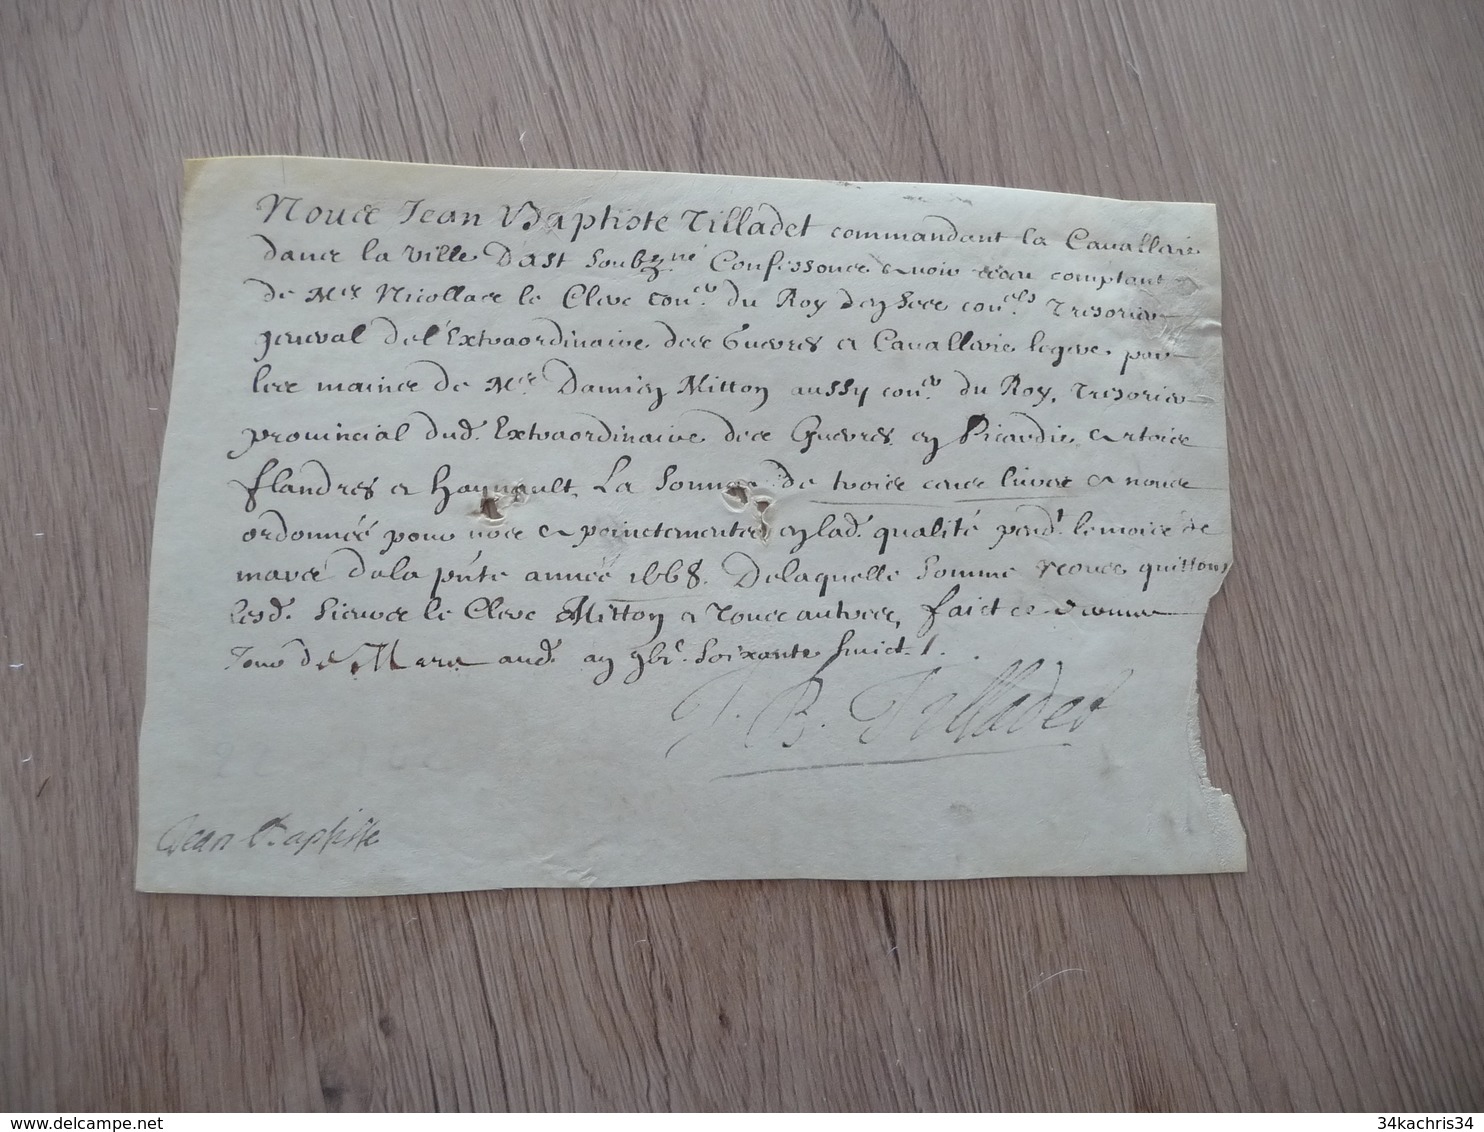 Nous Jean Baptiste Tilladet commandant la Cavallerie
dans la ville D'ast soubzné Confessons avoir receu comptant
de Mre Nicollas le Clerc conr du Roy en ses conls Tresorier
general del'Extraordinaire des Guerres et Cavallerie legere, par
les mains de Mre Damien Mitton aussy conr du Roy, Tresorier
provincial dud. Extraordinaire des Guerres en Picardie Artois
flandres et Haynault, La somme de trois cens livres a nous
ordonnée pour nos apointements en lad. qualité pend.t le mois de
mars dela pnte année 1668. Delaquelle somme Nous quittons
lesd. sieurs le Clerc Mitton et tous autres, faict ce
Jour de Mars aud. an gbc. soixante huict.
J. B. Tilladet
Jean Baptiste
delcampe.net
34kachris34